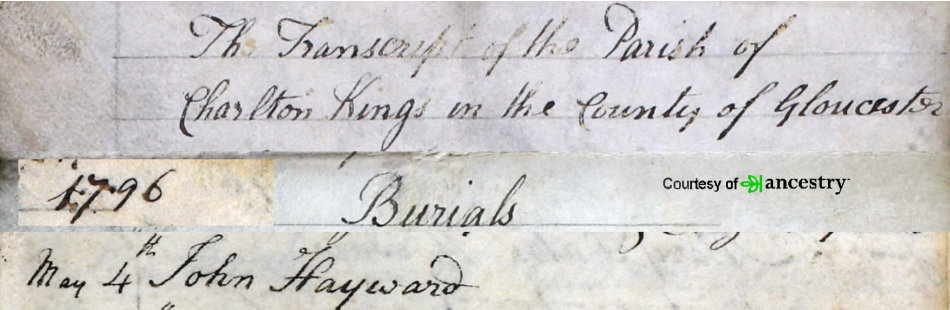 The Transcript of the Parish of
Charlton Kings in the County of Gloucester
1796
Burials
Courtesy of ancestry
May 4th John Hayward